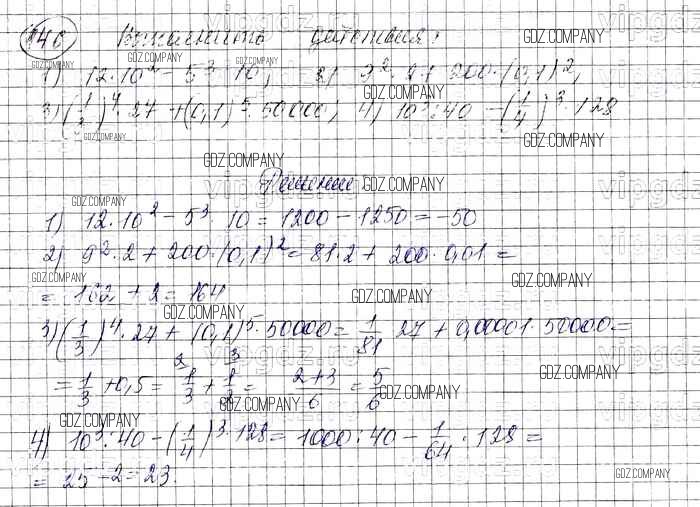 146 Выполнить действия:
1) 12·10² − 5³·10; 2) 9²·2+200·(0,1)²;
3) (1/3)⁴·27+(0,1)⁵·50000; 4) 10³:40 − (1/4)³·128
Решение:
1) 12·10² − 5³·10 = 1200 − 1250 = −50
2) 9²·2 + 200·(0,1)² = 81·2 + 200·0,01 =
= 162 + 2 = 164
3) (1/3)⁴·27 + (0,1)⁵·50000 = 1/81 · 27 + 0,00001·50000 =
= 1/3 + 0,5 = 1/3 + 1/2 = 2+3/6 = 5/6
4) 10³:40 − (1/4)³·128 = 1000:40 − 1/64 · 128 =
= 25 − 2 = 23.
GDZ.COMPANY
vipgdz.ru